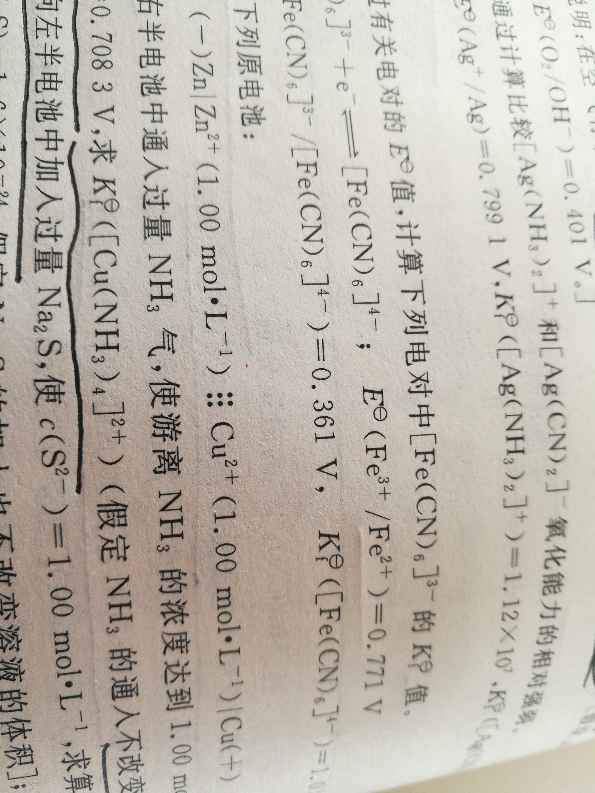 说明:在空
E⊖(O₂/OH⁻)=0.401 V。]
通过计算比较[Ag(NH₃)₂]⁺和[Ag(CN)₂]⁻氧化能力的相对强弱。
E⊖(Ag⁺/Ag)=0.799 1 V,Kf⊖([Ag(NH₃)₂]⁺)=1.12×10⁷,Kf⊖([Ag(
有关电对的E⊖值,计算下列电对中[Fe(CN)₆]³⁻的Kf⊖值。
)₆]³⁻+e⁻⇌[Fe(CN)₆]⁴⁻; E⊖(Fe³⁺/Fe²⁺)=0.771 V
Fe(CN)₆]³⁻/[Fe(CN)₆]⁴⁻)=0.361 V, Kf⊖([Fe(CN)₆]⁴⁻)=1.0
下列原电池:
(-)Zn|Zn²⁺(1.00 mol·L⁻¹)⫶⫶Cu²⁺(1.00 mol·L⁻¹)|Cu(+)
右半电池中通入过量NH₃气,使游离NH₃的浓度达到1.00 m
0.708 3 V,求Kf⊖([Cu(NH₃)₄]²⁺)(假定NH₃的通入不改变
向左半电池中加入过量Na₂S,使c(S²⁻)=1.00 mol·L⁻¹,求算
不改变溶液的体积];